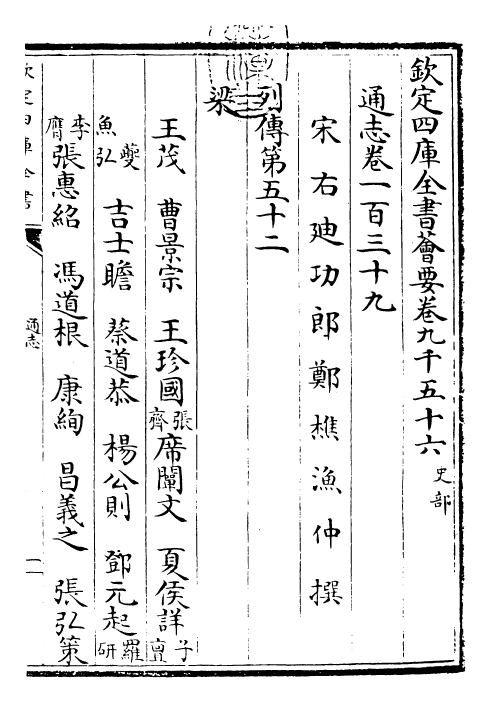 欽定四庫全書薈要卷九千五十六 史部
通志卷一百三十九
宋右迪功郎鄭樵漁仲撰
列傳第五十二
梁
王茂 曹景宗 王珍國 張齊 席闡文 夏侯詳 子亶
魚弘 夔 吉士瞻 蔡道恭 楊公則 鄧元起 羅研
李膺 張惠紹 馮道根 康絢 昌義之 張弘策
欽定四庫全書
通志
一